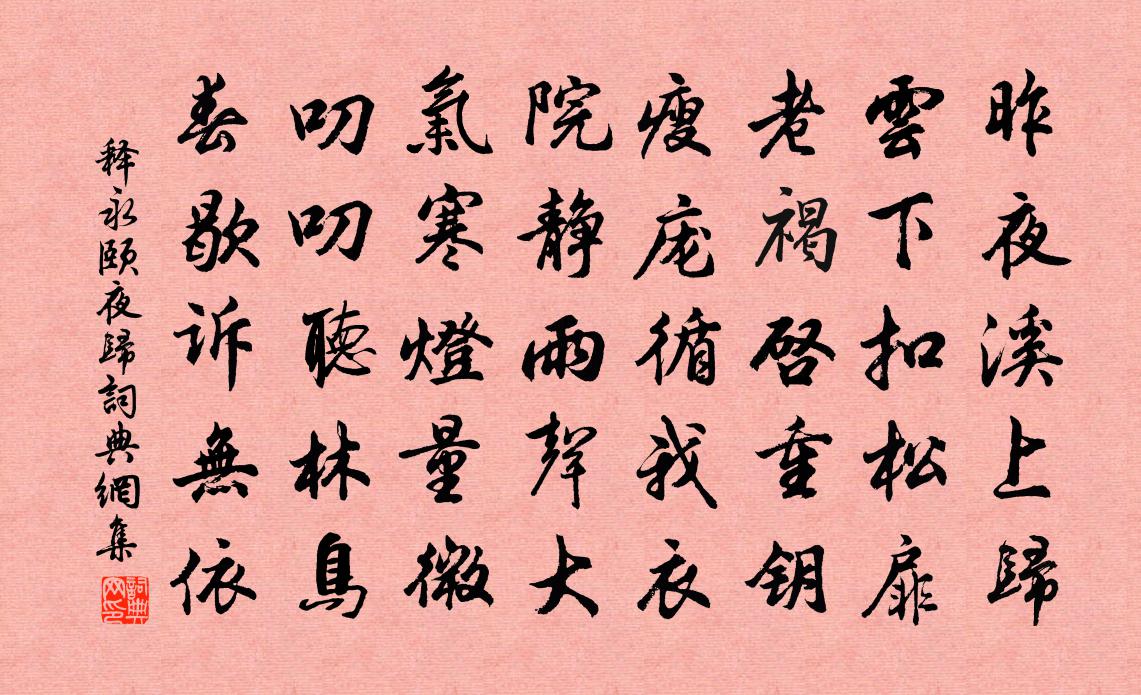 昨夜溪上歸
雲下扣松扉
老褐啓重钥
瘦庬循我衣
院静雨聲大
氣寒燈量微
叨叨聽林鳥
春歇诉無依
释永頤夜歸詞典網集
詞典网印